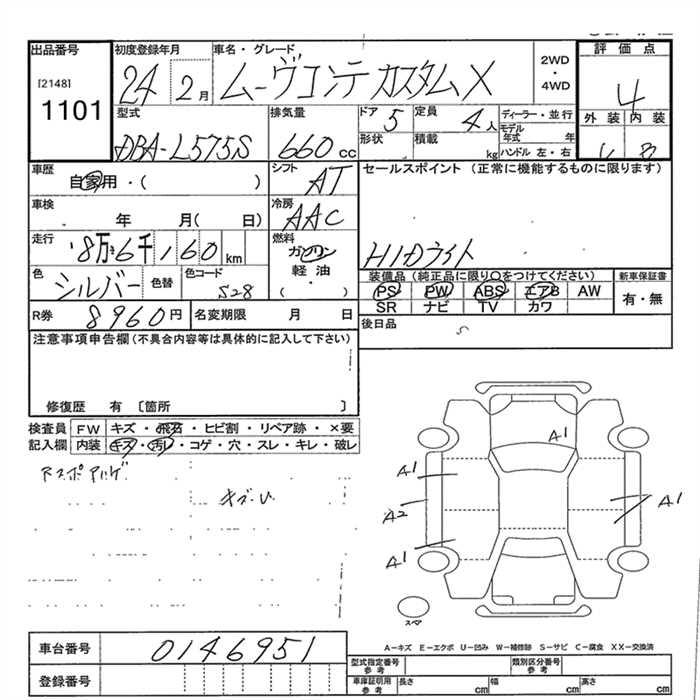 出品番号 初度登録年月 車名・グレード 2WD・4WD 評価点
[2148] 1101 24 2月 ムーヴコンテ カスタムX 4
型式 排気量 ドア 5 定員 4人 ディーラー・並行 外装 内装
DBA-L575S 660cc 形状 積載 kg モデル年式 年 ハンドル 左・右 B
車歴 自家用・( ) シフト AT セールスポイント (正常に機能するものに限ります)
車検 年 月( 日) 冷房 AAC
走行 8万6千160km 燃料 ガソリン 軽油 ( ・ ) HIDライト
色 シルバー 色替 色コード S28 装備品 (純正品に限り○をつけてください) 新車保証書
PS PW ABS エアB AW 有・無
SR ナビ TV カワ
R券 8960円 名変期限 月 日 後日品
注意事項申告欄 (不具合内容等は具体的に記入して下さい)
修復歴 有 〔箇所 〕
検査員 FW キズ・飛石・ヒビ割・リペア跡・×要
記入欄 内装 キズ・汚れ・コゲ・穴・スレ・キレ・破レ
A1
A1
A1
A2
A1
スペア
A-キズ E-エクボ U-凹み W-補修跡 S-サビ C-腐食 XX-交換済
車台番号 0146951
登録番号
型式指定番号 参考 類別区分番号 参考
車庫証明用 参考 長さ cm 幅 cm 高さ cm